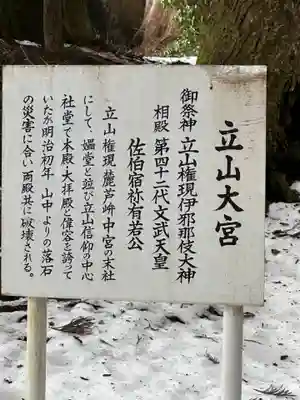 立山大宮
御祭神 立山権現伊邪那岐大神
相殿 第四十二代文武天皇
佐伯宿祢有若公
立山権現麓芦峅中宮の末社
にして、媼堂と並び立山信仰の中心
社堂で本殿・大拝殿と偉容を誇って
いたが明治初年、山中よりの落石
の災害に合い両殿共に破壊される。